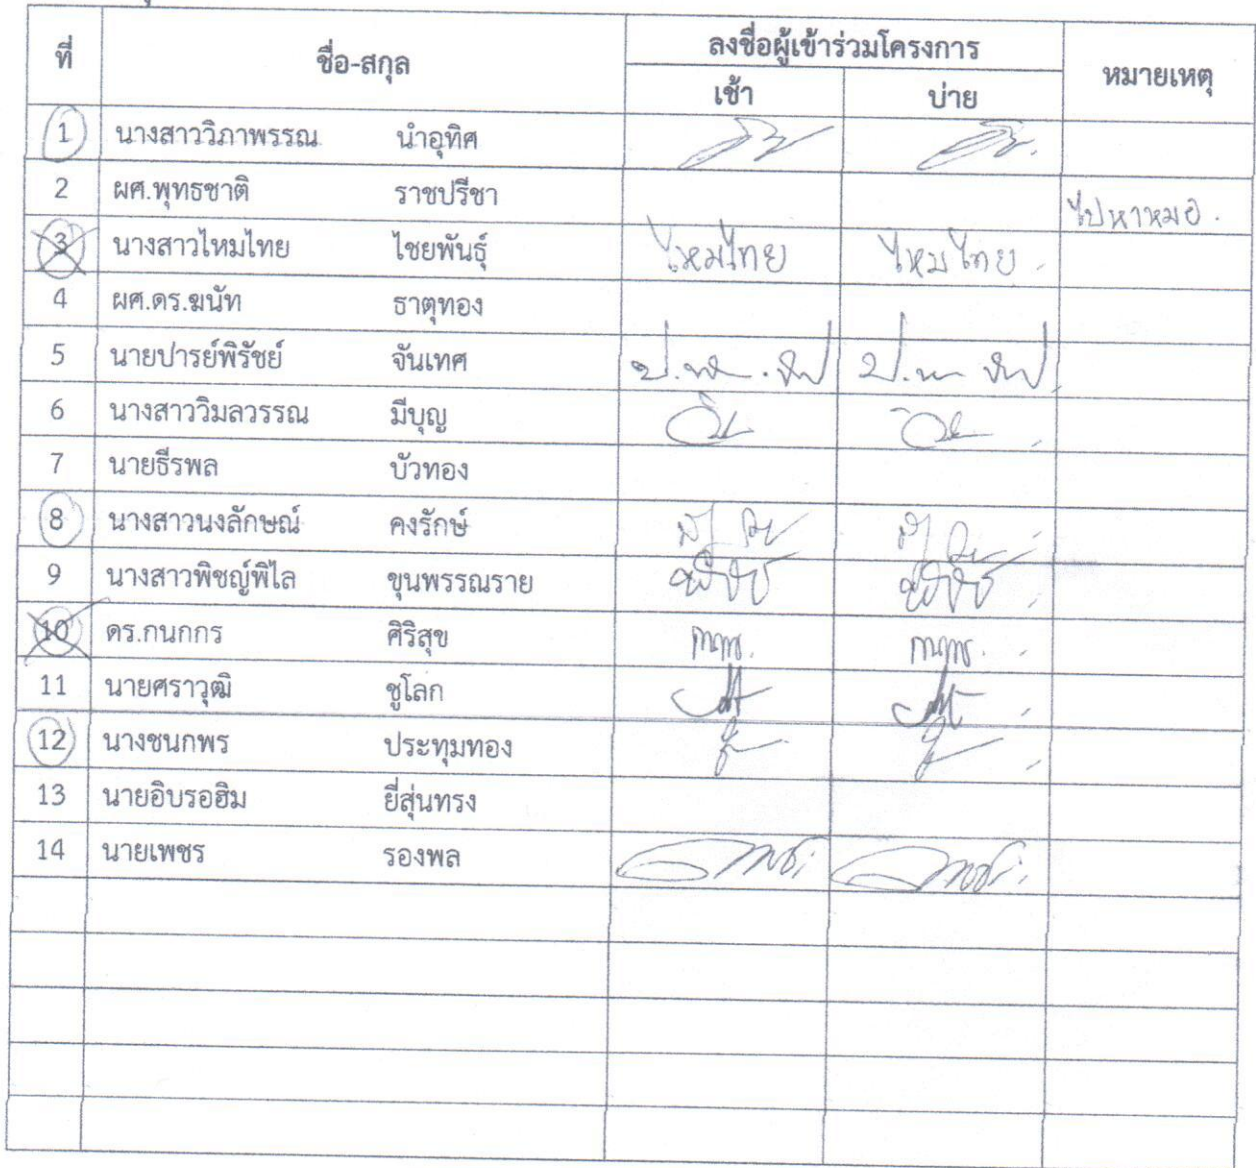 ที่ ชื่อ-สกุล ลงชื่อผู้เข้าร่วมโครงการ หมายเหตุ
เช้า บ่าย
1 นางสาววิภาพรรณ นำอุทิศ
2 ผศ.พุทธชาติ ราชปรีชา ไปหาหมอ.
3 นางสาวไหมไทย ไชยพันธุ์ ไหมไทย ไหมไทย
4 ผศ.ดร.ฆนัท ธาตุทอง
5 นายปารย์พิรัชย์ จันเทศ
6 นางสาววิมลวรรณ มีบุญ
7 นายธีรพล บัวทอง
8 นางสาวนงลักษณ์ คงรักษ์
9 นางสาวพิชญ์พิไล ขุนพรรณราย
10 ดร.กนกกร ศิริสุข
11 นายศราวุฒิ ชูโลก
12 นางชนกพร ประทุมทอง
13 นายอิบรอฮิม ยี่สุ่นทรง
14 นายเพชร รองพล